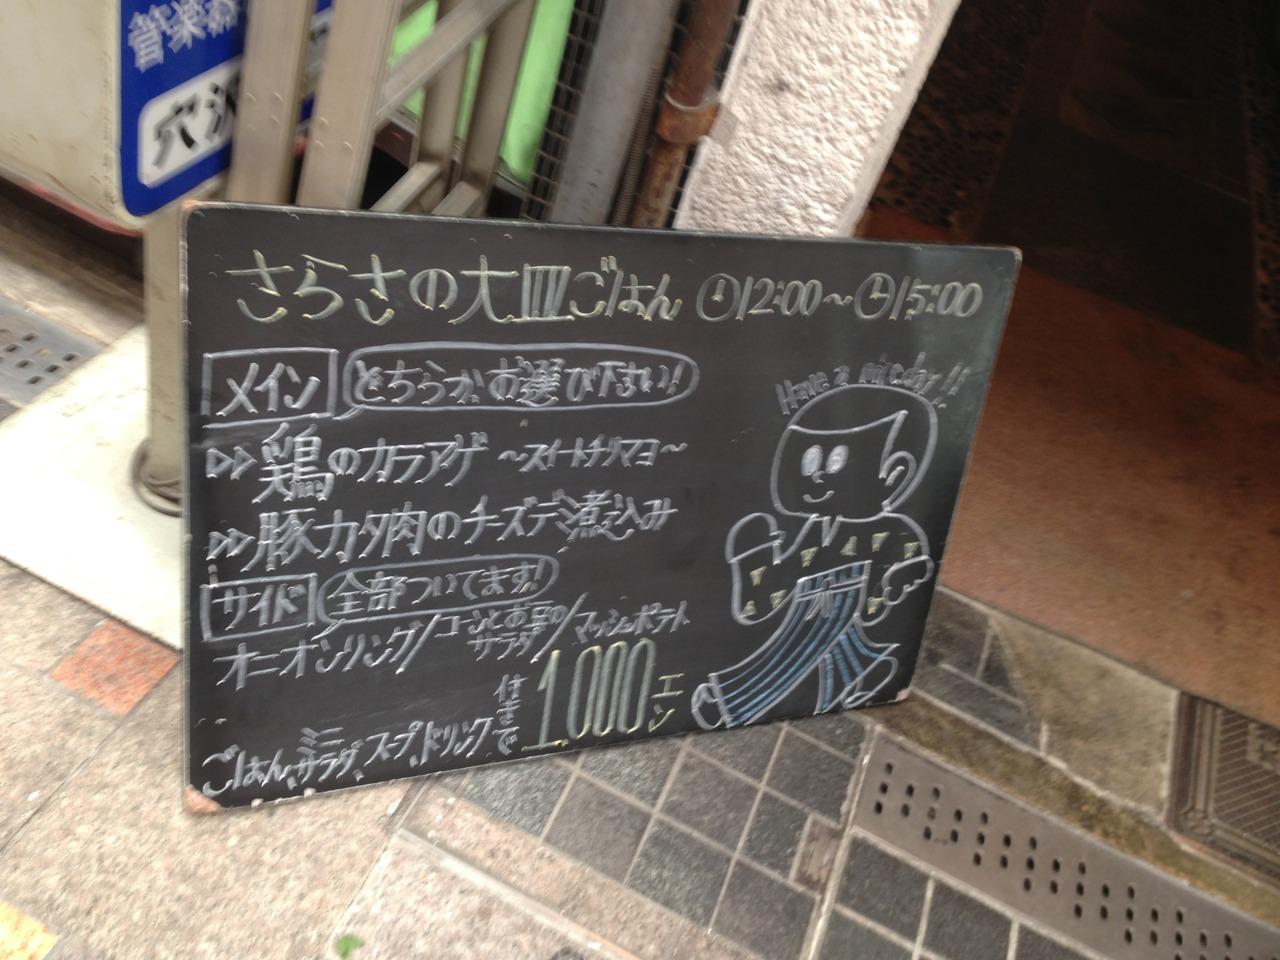 管楽器
穴沢
さらさの大皿ごはん 12:00〜15:00
メイン どちらかお選び下さい!
鶏のカラアゲ 〜スイートチリマヨ〜
豚カタ肉のチーズデミ煮込み
サイド 全部ついてます!
オニオンリング/コーンとお豆のサラダ/マッシュポテト
ごはん、ミニサラダ、スープ、ドリンク付きで 1000エン
Have a nice day!!